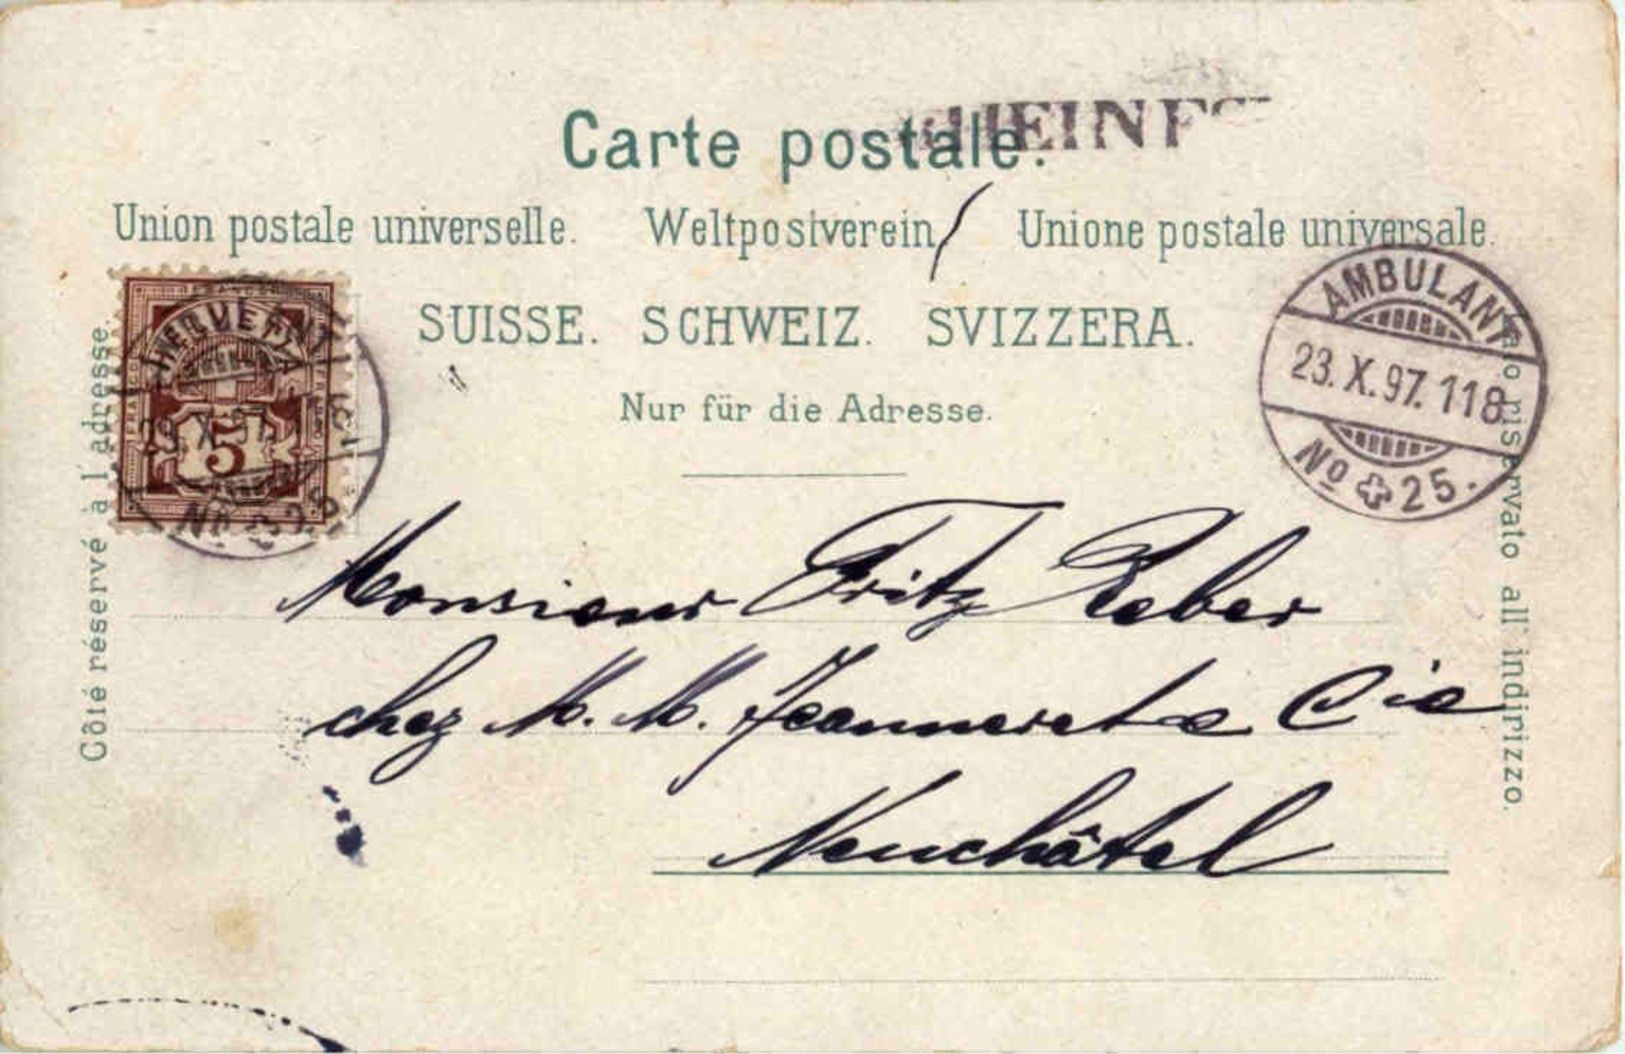 Carte postale.
Union postale universelle. Weltpostverein Unione postale universale.
SUISSE. SCHWEIZ. SVIZZERA.
Nur für die Adresse.
Côté réservé à l'adresse.
Lato riservato all'indirizzo.
HELVETIA
5
AMBULANT
23.X.97.118
No 25.
Monsieur Fritz Reber
chez M. M. Jeanneret & Cie
Neuchâtel